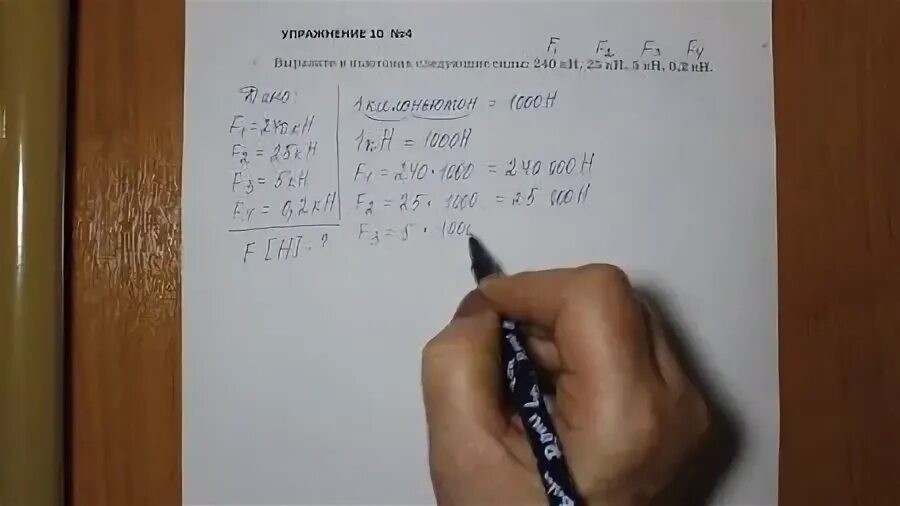 УПРАЖНЕНИЕ 10 №4
F₁ F₂ F₃ F₄
Выразите в ньютонах следующие силы: 240 кН, 25 кН, 5 кН, 0,2 кН.
Дано:
F₁ = 240 кН
F₂ = 25 кН
F₃ = 5 кН
F₄ = 0,2 кН
F [Н] - ?
1 килоньютон = 1000 Н
1 кН = 1000 Н
F₁ = 240 · 1000 = 240 000 Н
F₂ = 25 · 1000 = 25 000 Н
F₃ = 5 · 100